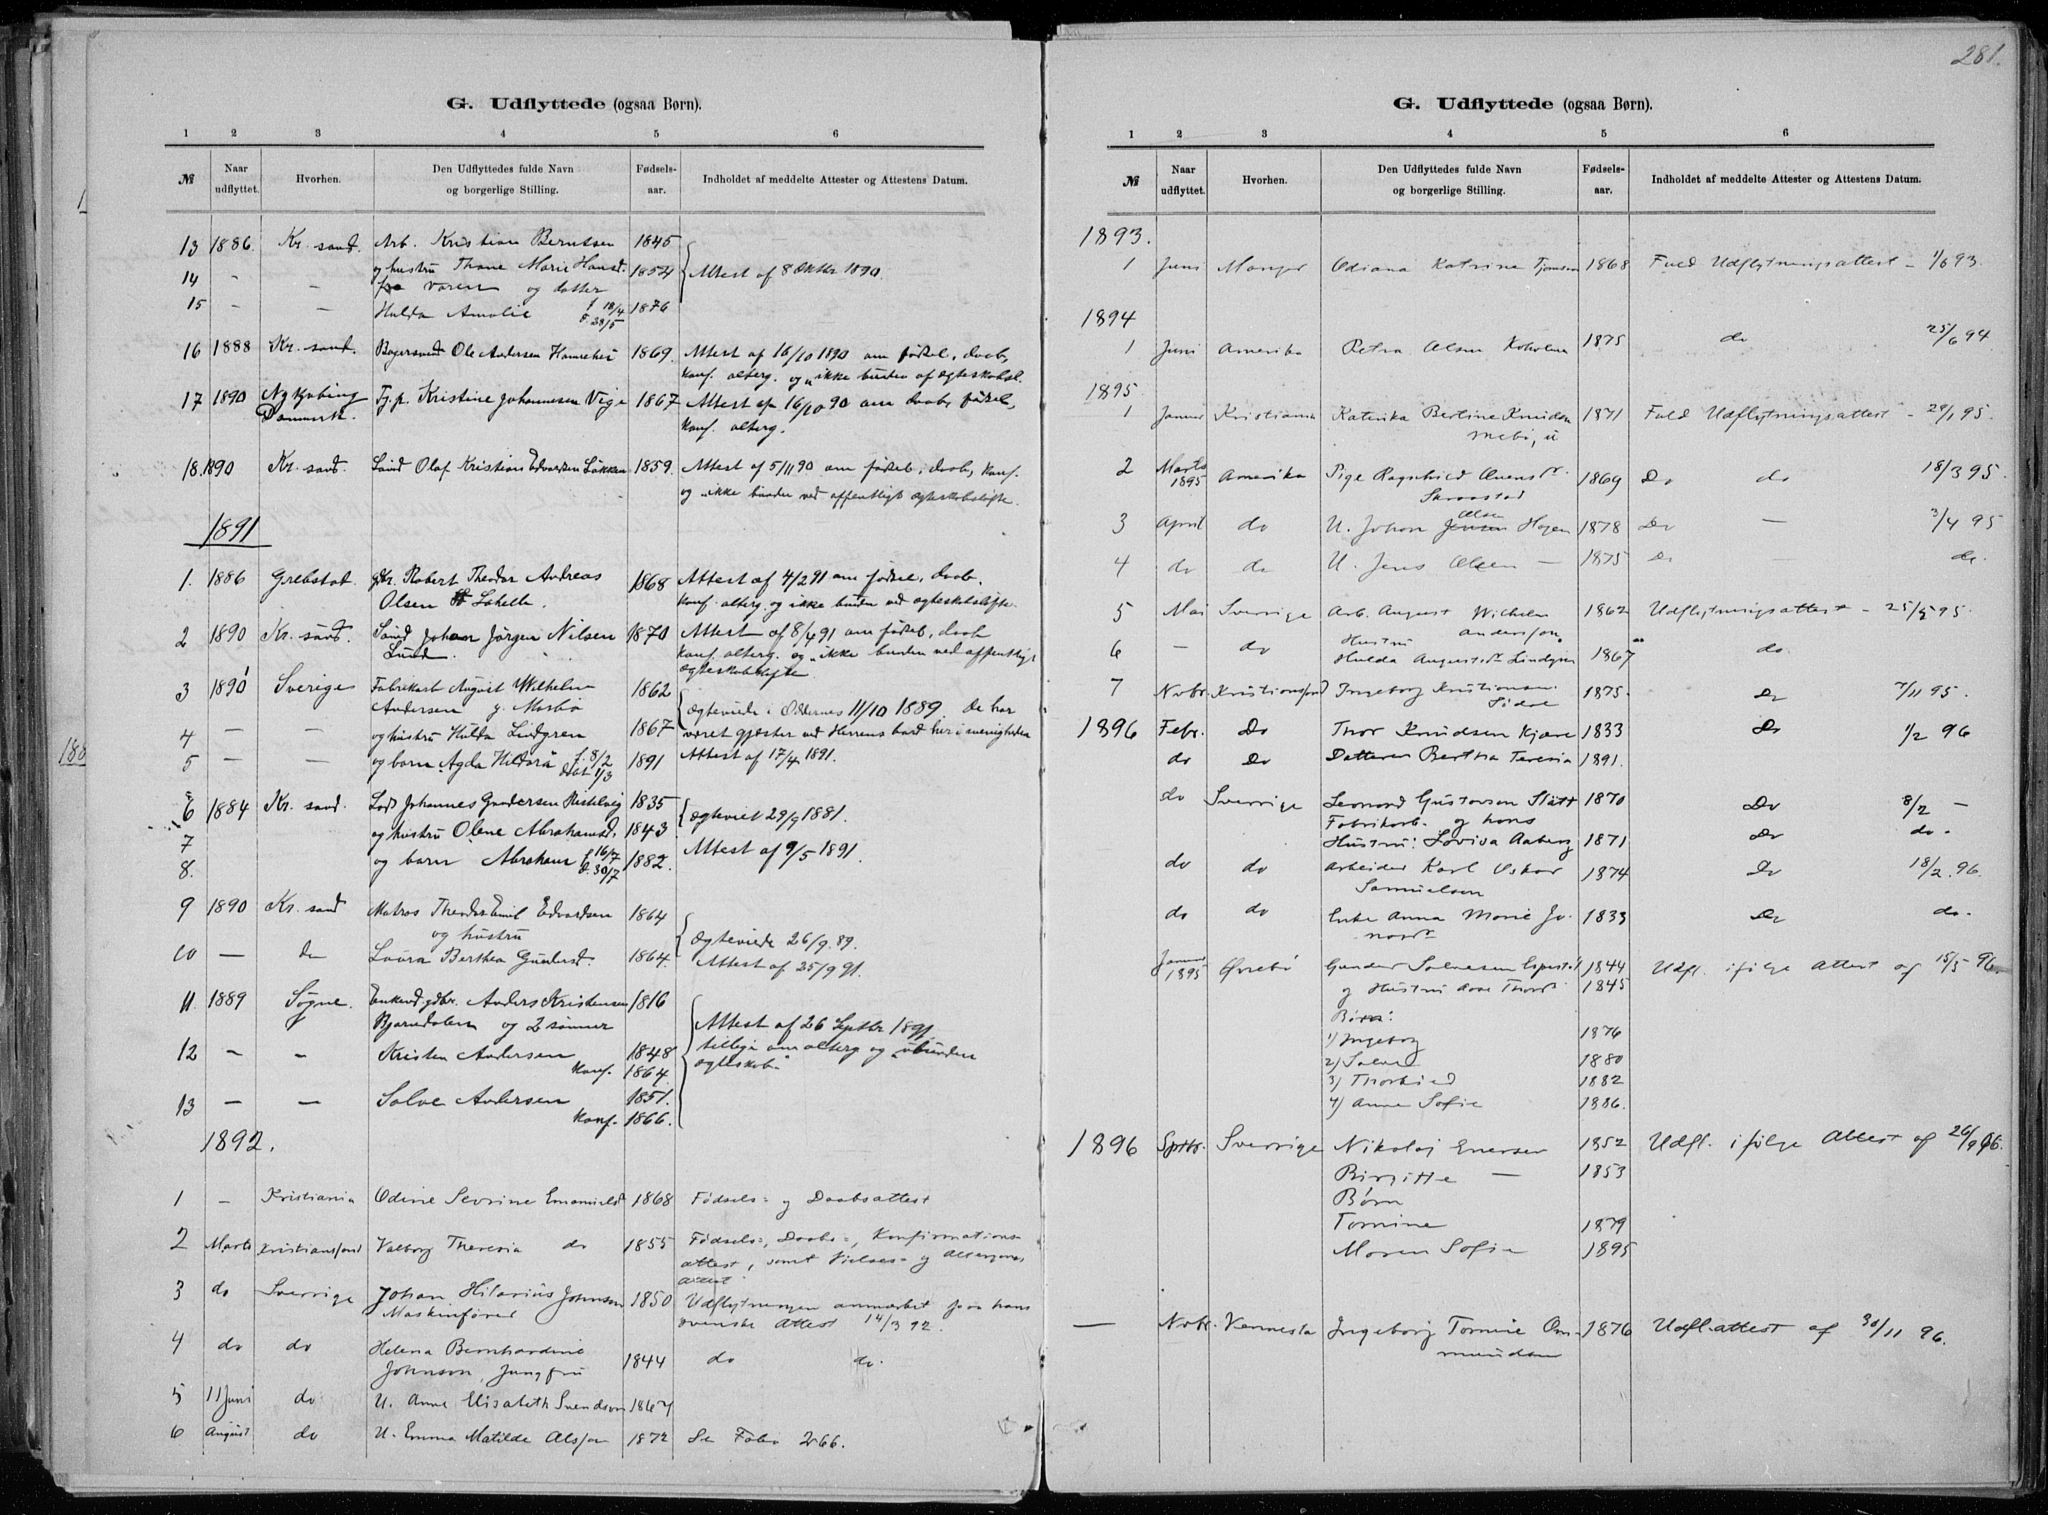 281.
G. Udflyttede (ogsaa Børn).
1 2 3 4 5 6
№ Naar udflyttet. Hvorhen. Den Udflyttedes fulde Navn og borgerlige Stilling. Fødsels-aar. Indholdet af meddelte Attester og Attestens Datum.
13 1886. Kr. sand. Arb. Kristian Berntsen 1845
14 - - og hustru Thone Marie Hansd. 1854 Attest af 8 Oktbr 1890.
og datter
15 - - Hulda Amalie f 18/4 1876
d. 28/5
16 1888 Kr. sand. Ole Andersen 1869. Attest af 16/10 1890 om fødsel, daab,
konf. alterg. og ikke bunden af ægteskabsl.
17 1890 Nykjøbing Kristine Johannesen Vige 1867 Attest af 16/10 90 om daab, fødsel,
Danmark. konf. alterg.
18. 1890 Kr. sand. Olaf Kristian Edvardsen Løkken 1859. Attest af 5/11 90 om fødsel, daab, konf.
og ikke bunden ved offentligt ægteskabsløfte.
1891
1. 1886 Grebstad. gbr. Robert Theodor Andreas 1868 Attest af 4/2 91 om fødsel, daab.
Olsen konf. alterg. og ikke bunden ved ægteskabsløfte.
2 1890 Kr. sand. Johan Jørgen Nilsen 1870 Attest af 8/4 91 om fødsel, daab
Lund. konf. alterg. og ikke bunden ved offentligt
ægteskabsløfte.
3 1890 Sverige Fabrikarb August Wilhelm 1862
Andersen g. Mosbø ægteviede i Oddernes 11/10 1889. De har
4 - - og hustru Hulda Lindgren 1867 været gjæster ved Herrens bord her i menigheden
5 - - og barn Agda Hildora f. 8/2 1891 Attest af 17/4 1891.
døbt 1/3
6 1884 Kr. sand. Lods Johannes Gundersen 1835
7 og hustru Olene Abrahamsd. 1843 ægteviet 29/9 1881.
8. og barn Abraham f 16/7 1882. Attest af 9/5 1891.
d. 30/7
9 1890 Kr. sand Matros Theodor Emil Edvardsen 1864
og hustru ægteviede 26/9. 89.
10 - do Laura Berthea Gundersd. 1864. Attest af 25/9 91.
11 1889 Søgne. Enkemd. gbr. Anders Kristensen 1816
Bjørndalen og 2 sønner Attest af 26 Septbr 1891
12 - - Kristen Andersen 1848 tillige om alterg og ubunden
konf. 1864. ægteskab.
13 - - Salve Andersen 1851.
konf. 1866.
1892.
1 - Kristiania Odine Sevrine Emanuelsd 1868 Fødsels- og Daabsattest
2 Marts Kristianssand Valborg Theresia do 1855 Fødsels-, Daabs-, Konfirmations-
attest, samt Vielses- og Altergangs
attest.
3 do Sverrige Johan Hilarius Johnson 1850 Udflytningen anmærket paa hans
Maskinfører svenske Attest 14/3 92.
4 do do Helena Bernhardine
Johnson, Jungfru 1844 do do.
5 11 Juni do U. Anna Elisabeth Svendson 1867
6 August do U. Emma Matilde 1872 Se Folio 266.
G. Udflyttede (ogsaa Børn).
1 2 3 4 5 6
№ Naar udflyttet. Hvorhen. Den Udflyttedes fulde Navn og borgerlige Stilling. Fødsels-aar. Indholdet af meddelte Attester og Attestens Datum.
1893.
1 Juni Manger Odiana Katrine 1868 Fuld Udflytningsattest - 1/6 93
1894
1 Juni Amerika Petra Olsen 1875 do 25/6 94
1895
1 Januar Kristiania Katinka Bertine Knudsen 1871 Fuld Udflytningsattest - 29/1 95.
2 Marts 1895 Amerika Pige Ragnhild 1869 Do do 18/3 95.
3 April do U. Johan Jensen Olsen Hagen 1878 Do - 3/4 95
4 do do U. Jens Olsen - 1875 Do - do.
5 Mai Sverrige Arb. August Wilhelm 1862 Udflytningsattest - 25/5 95.
Andersson.
6 - do Hustru
Hulda Augustsdr Lindgren 1867 do.
7 Novbr. Kristianssand Ingeborg Kristiansen 1875. Do 7/11 95.
1896 Febr. Do Thor Knudsen Kjære 1833 Do 1/2 96
do Do Datteren Bertha Teresia 1891.
do Sverrige Leonard Gustavson Slätt 1870 Do 8/2 -
Fabrikarb. og hans
Hustru: Lovisa Aaberg 1871 Do do.
do do Arbeider Karl Oskar 1874 Do 18/2. 96.
Samuelsen
do do Enke Anna Marie Jo- 1833 Do do.
nasdr
Januar 1895 Øvrebø Gunder Salvesen 1844 Udfl. ifølge Attest af 15/5 96
og Hustru 1845
Børn:
1) Ingeborg 1876
2) Salve 1880
3) Thorbiø 1882
4) Anne Sofie 1886.
1896 Sptbr. Sverrige Nikolaj Enersen 1852 Udfl. ifølge Attest af 26/9 96.
Birgitte - 1853
Børn
Tomine 1879
Maren Sofie 1895
- Novbr. Vennesla Ingeborg Tomine Om- 1876 Udfl.attest af 30/11 96.
mundsen